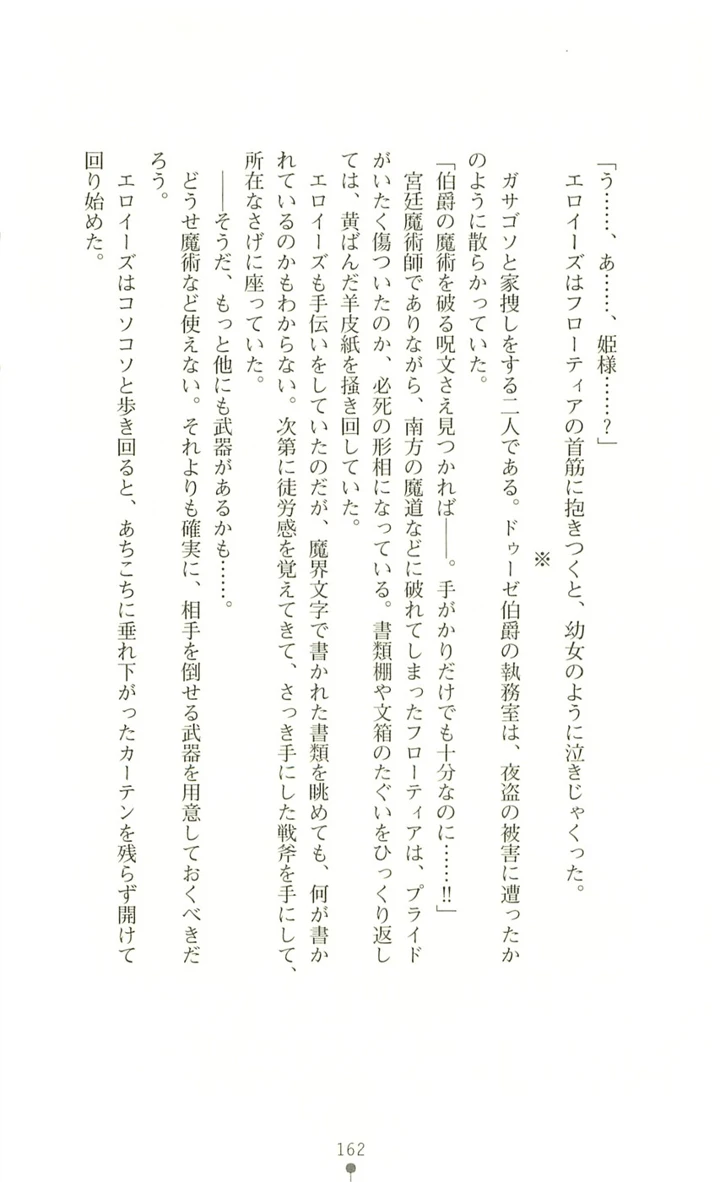 「う……、あ……、姫様……？」
エロイーズはフローティアの首筋に抱きつくと、幼女のように泣きじゃくった。
※
ガサゴソと家捜しをする二人である。ドゥーゼ伯爵の執務室は、夜盗の被害に遭ったか
のように散らかっていた。
「伯爵の魔術を破る呪文さえ見つかれば――。手がかりだけでも十分なのに……!!」
宮廷魔術師でありながら、南方の魔道などに破れてしまったフローティアは、プライド
がいたく傷ついたのか、必死の形相になっている。書類棚や文箱のたぐいをひっくり返し
ては、黄ばんだ羊皮紙を掻き回していた。
エロイーズも手伝いをしていたのだが、魔界文字で書かれた書類を眺めても、何が書か
れているのかもわからない。次第に徒労感を覚えてきて、さっき手にした戦斧を手にして、
所在なさげに座っていた。
――そうだ、もっと他にも武器があるかも……。
どうせ魔術など使えない。それよりも確実に、相手を倒せる武器を用意しておくべきだ
ろう。
エロイーズはコソコソと歩き回ると、あちこちに垂れ下がったカーテンを残らず開けて
回り始めた。
162